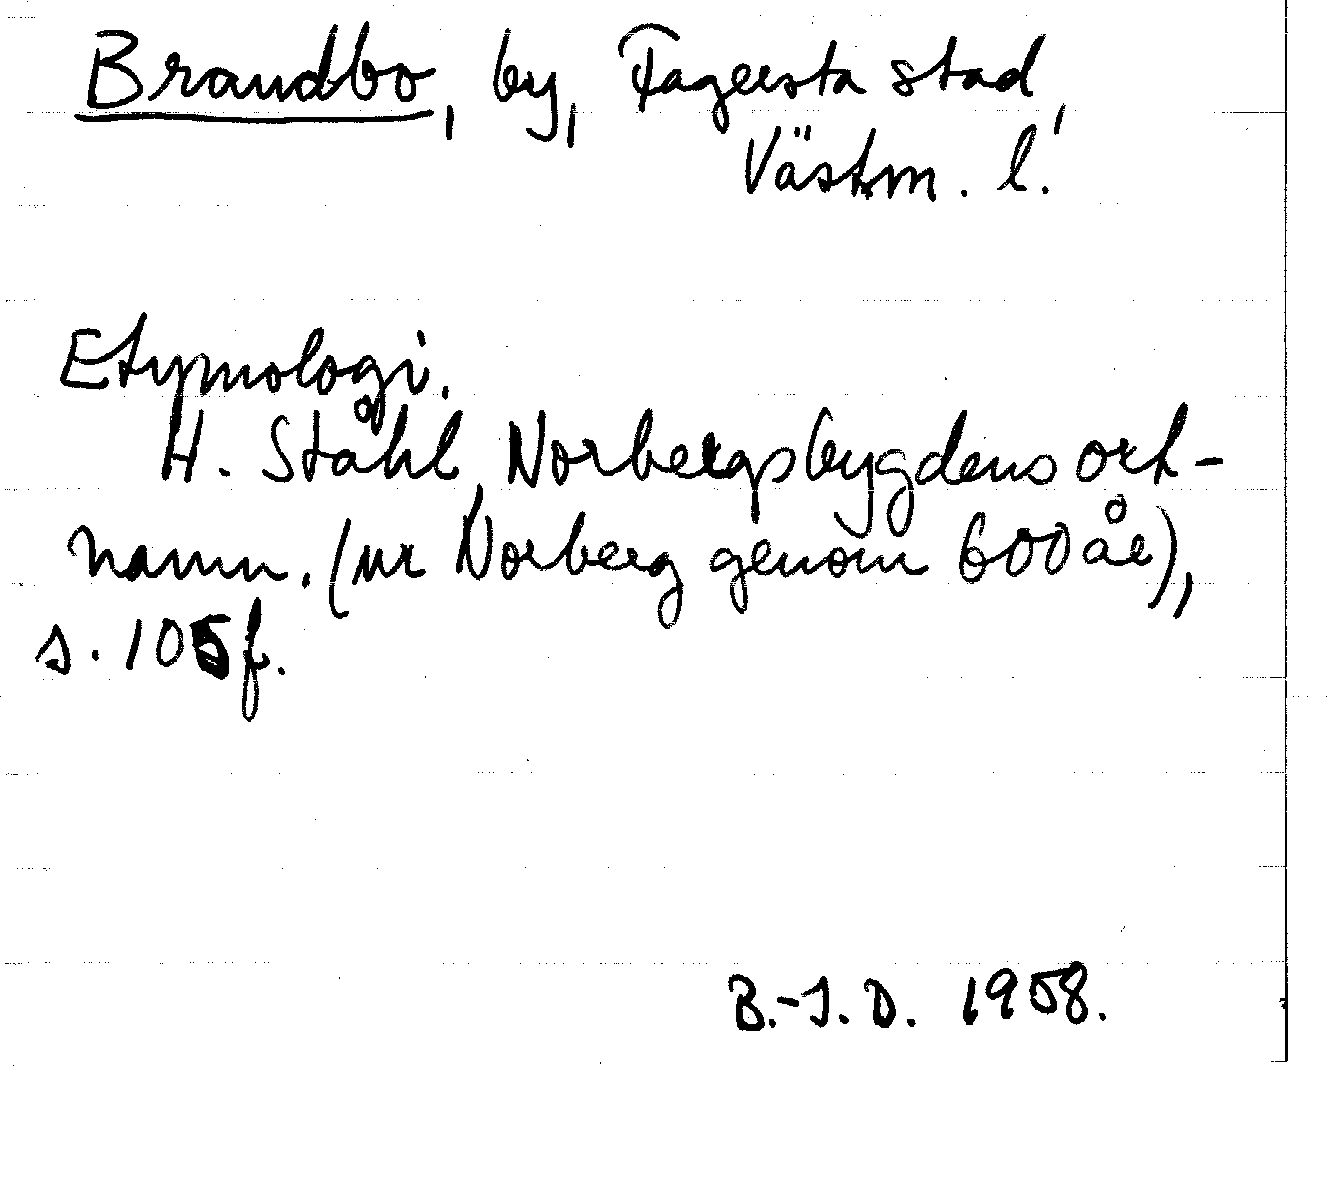 Brandbo, by, Fagersta stad,
Västm. l.
Etymologi.
H. Ståhl, Norbergsbygdens ort-
namn. (ur Norberg genom 600 år),
s. 105 f.
B.-I. D. 1958.